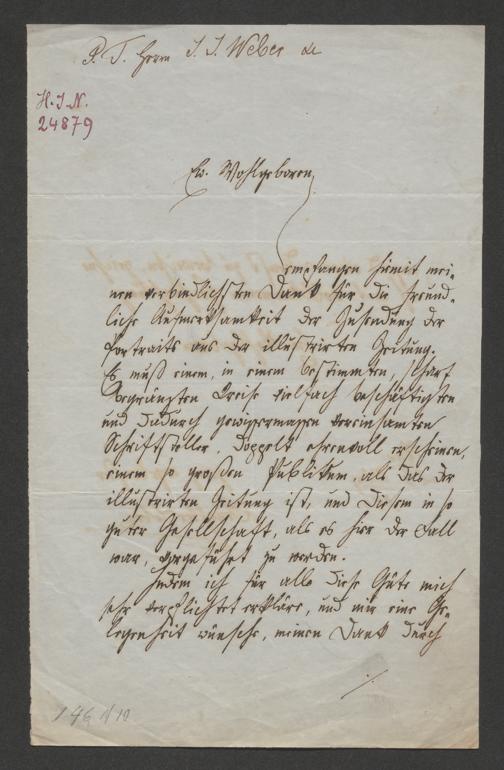 P. T. Herrn J. J. Weber
H. I. N.
24879
Ew. Wohlgeboren
empfangen hiemit mei-
nen verbindlichsten Dank für die freund-
liche Aufmerksamkeit der Zusendung der
Portraits aus der illustrirten Zeitung.
Es muß einem, in einem bestimmten, scharf
begränzten Kreise vielfach beschäftigten
und dadurch gewissermassen vereinsamten
Schriftsteller, doppelt ehrenvoll erscheinen,
einem so großen Publikum, als das der
illustrirten Zeitung ist, und diesem in so
guter Gesellschaft, als es hier der Fall
war, vorgeführt zu werden.
Indem ich für alle diese Güte mich
sehr verpflichtet erkläre, und mir eine Ge-
legenheit wünsche, meinen Dank durch
./.